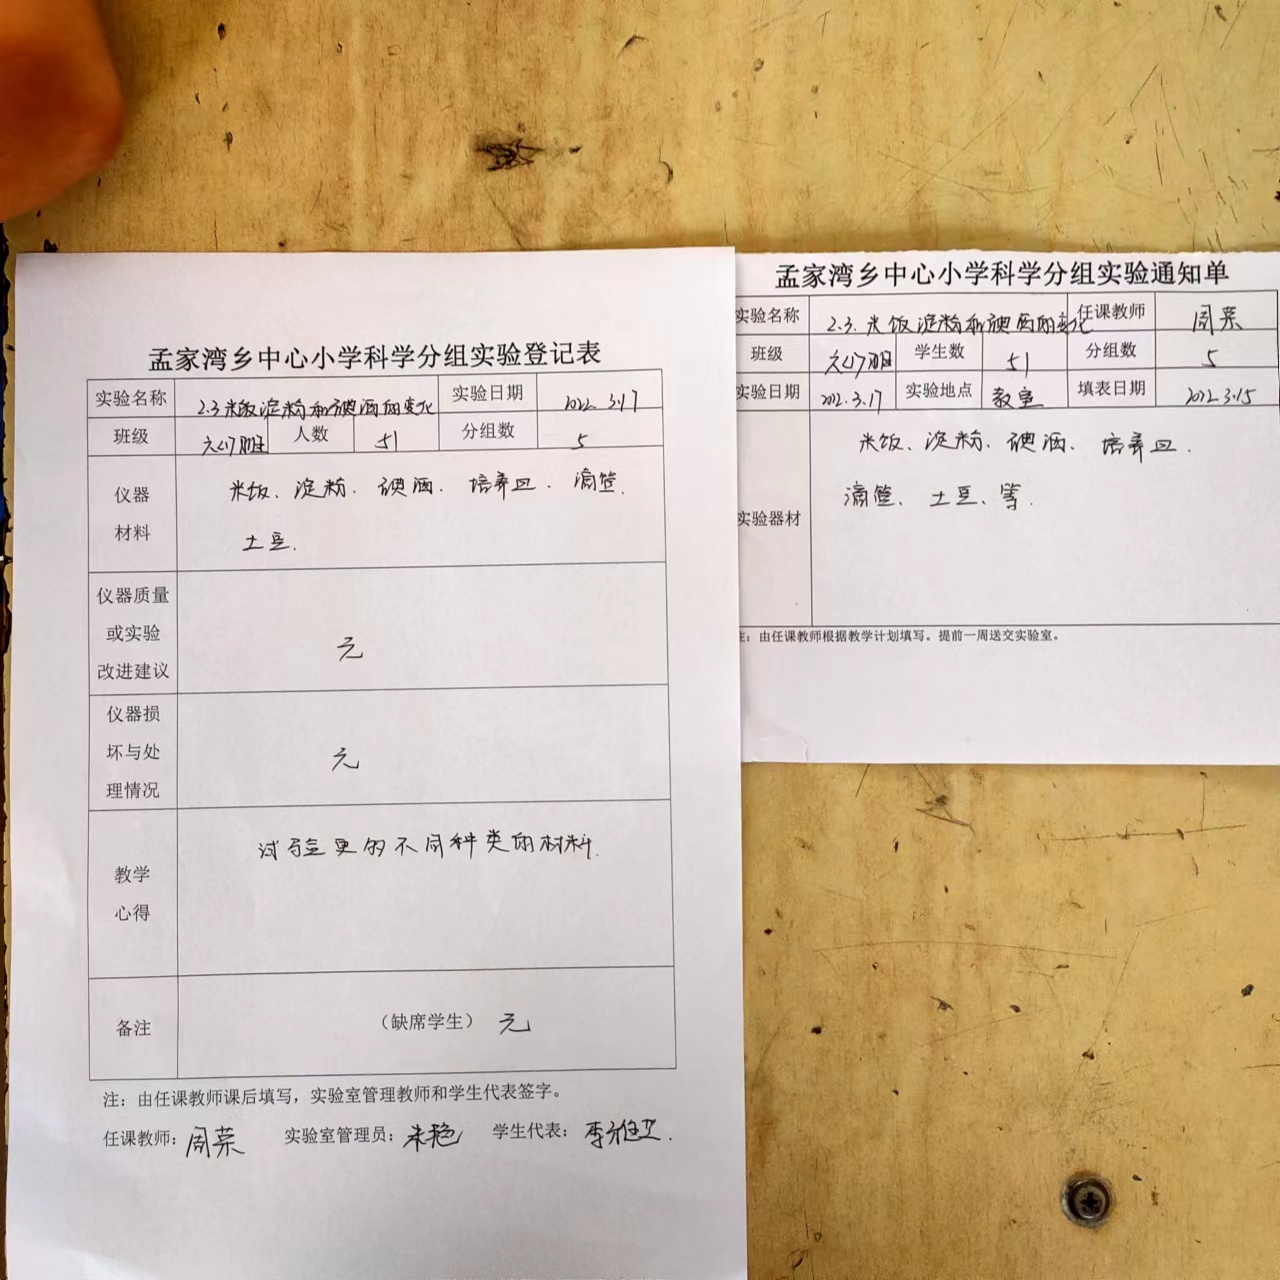 孟家湾乡中心小学科学分组实验登记表
实验名称 2.3米饭淀粉和碘酒的变化 实验日期 2022.3.17
班级 六(1)班 人数 51 分组数 5
仪器
材料
米饭、淀粉、碘酒、培养皿、滴管、
土豆.
仪器质量
或实验
改进建议
无
仪器损
坏与处
理情况
无
教学
心得
试验更的不同种类的材料.
备注 (缺席学生) 无
注：由任课教师课后填写，实验室管理教师和学生代表签字。
任课教师：周荣 实验室管理员：朱艳 学生代表：
孟家湾乡中心小学科学分组实验通知单
实验名称 2.3.米饭淀粉和碘酒的变化 任课教师 周荣
班级 六(1)班 学生数 51 分组数 5
实验日期 2022.3.17 实验地点 教室 填表日期 2022.3.15
实验器材
米饭、淀粉、碘酒、培养皿.
滴管、土豆、等.
注：由任课教师根据教学计划填写。提前一周送交实验室。